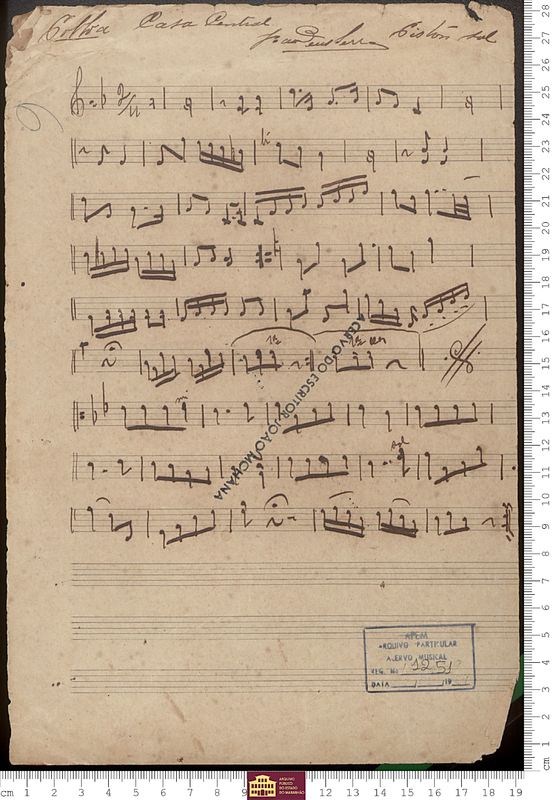 Polka Casa Central Piston sol
1ª 2ª vez
ACERVO DO ESCRITOR JOÃO MOHANA
sol
APEM
ARQUIVO PARTICULAR
ACERVO MUSICAL
REG. No 1251
DATA / /19
28
27
26
25
24
23
22
21
20
19
18
17
16
15
14
13
12
11
10
9
8
7
6
5
4
3
2
1
cm
cm 1 2 3 4 5 6 7 8 9 11 12 13 14 15 16 17 18 19
ARQUIVO
PÚBLICO
DO ESTADO
DO MARANHÃO